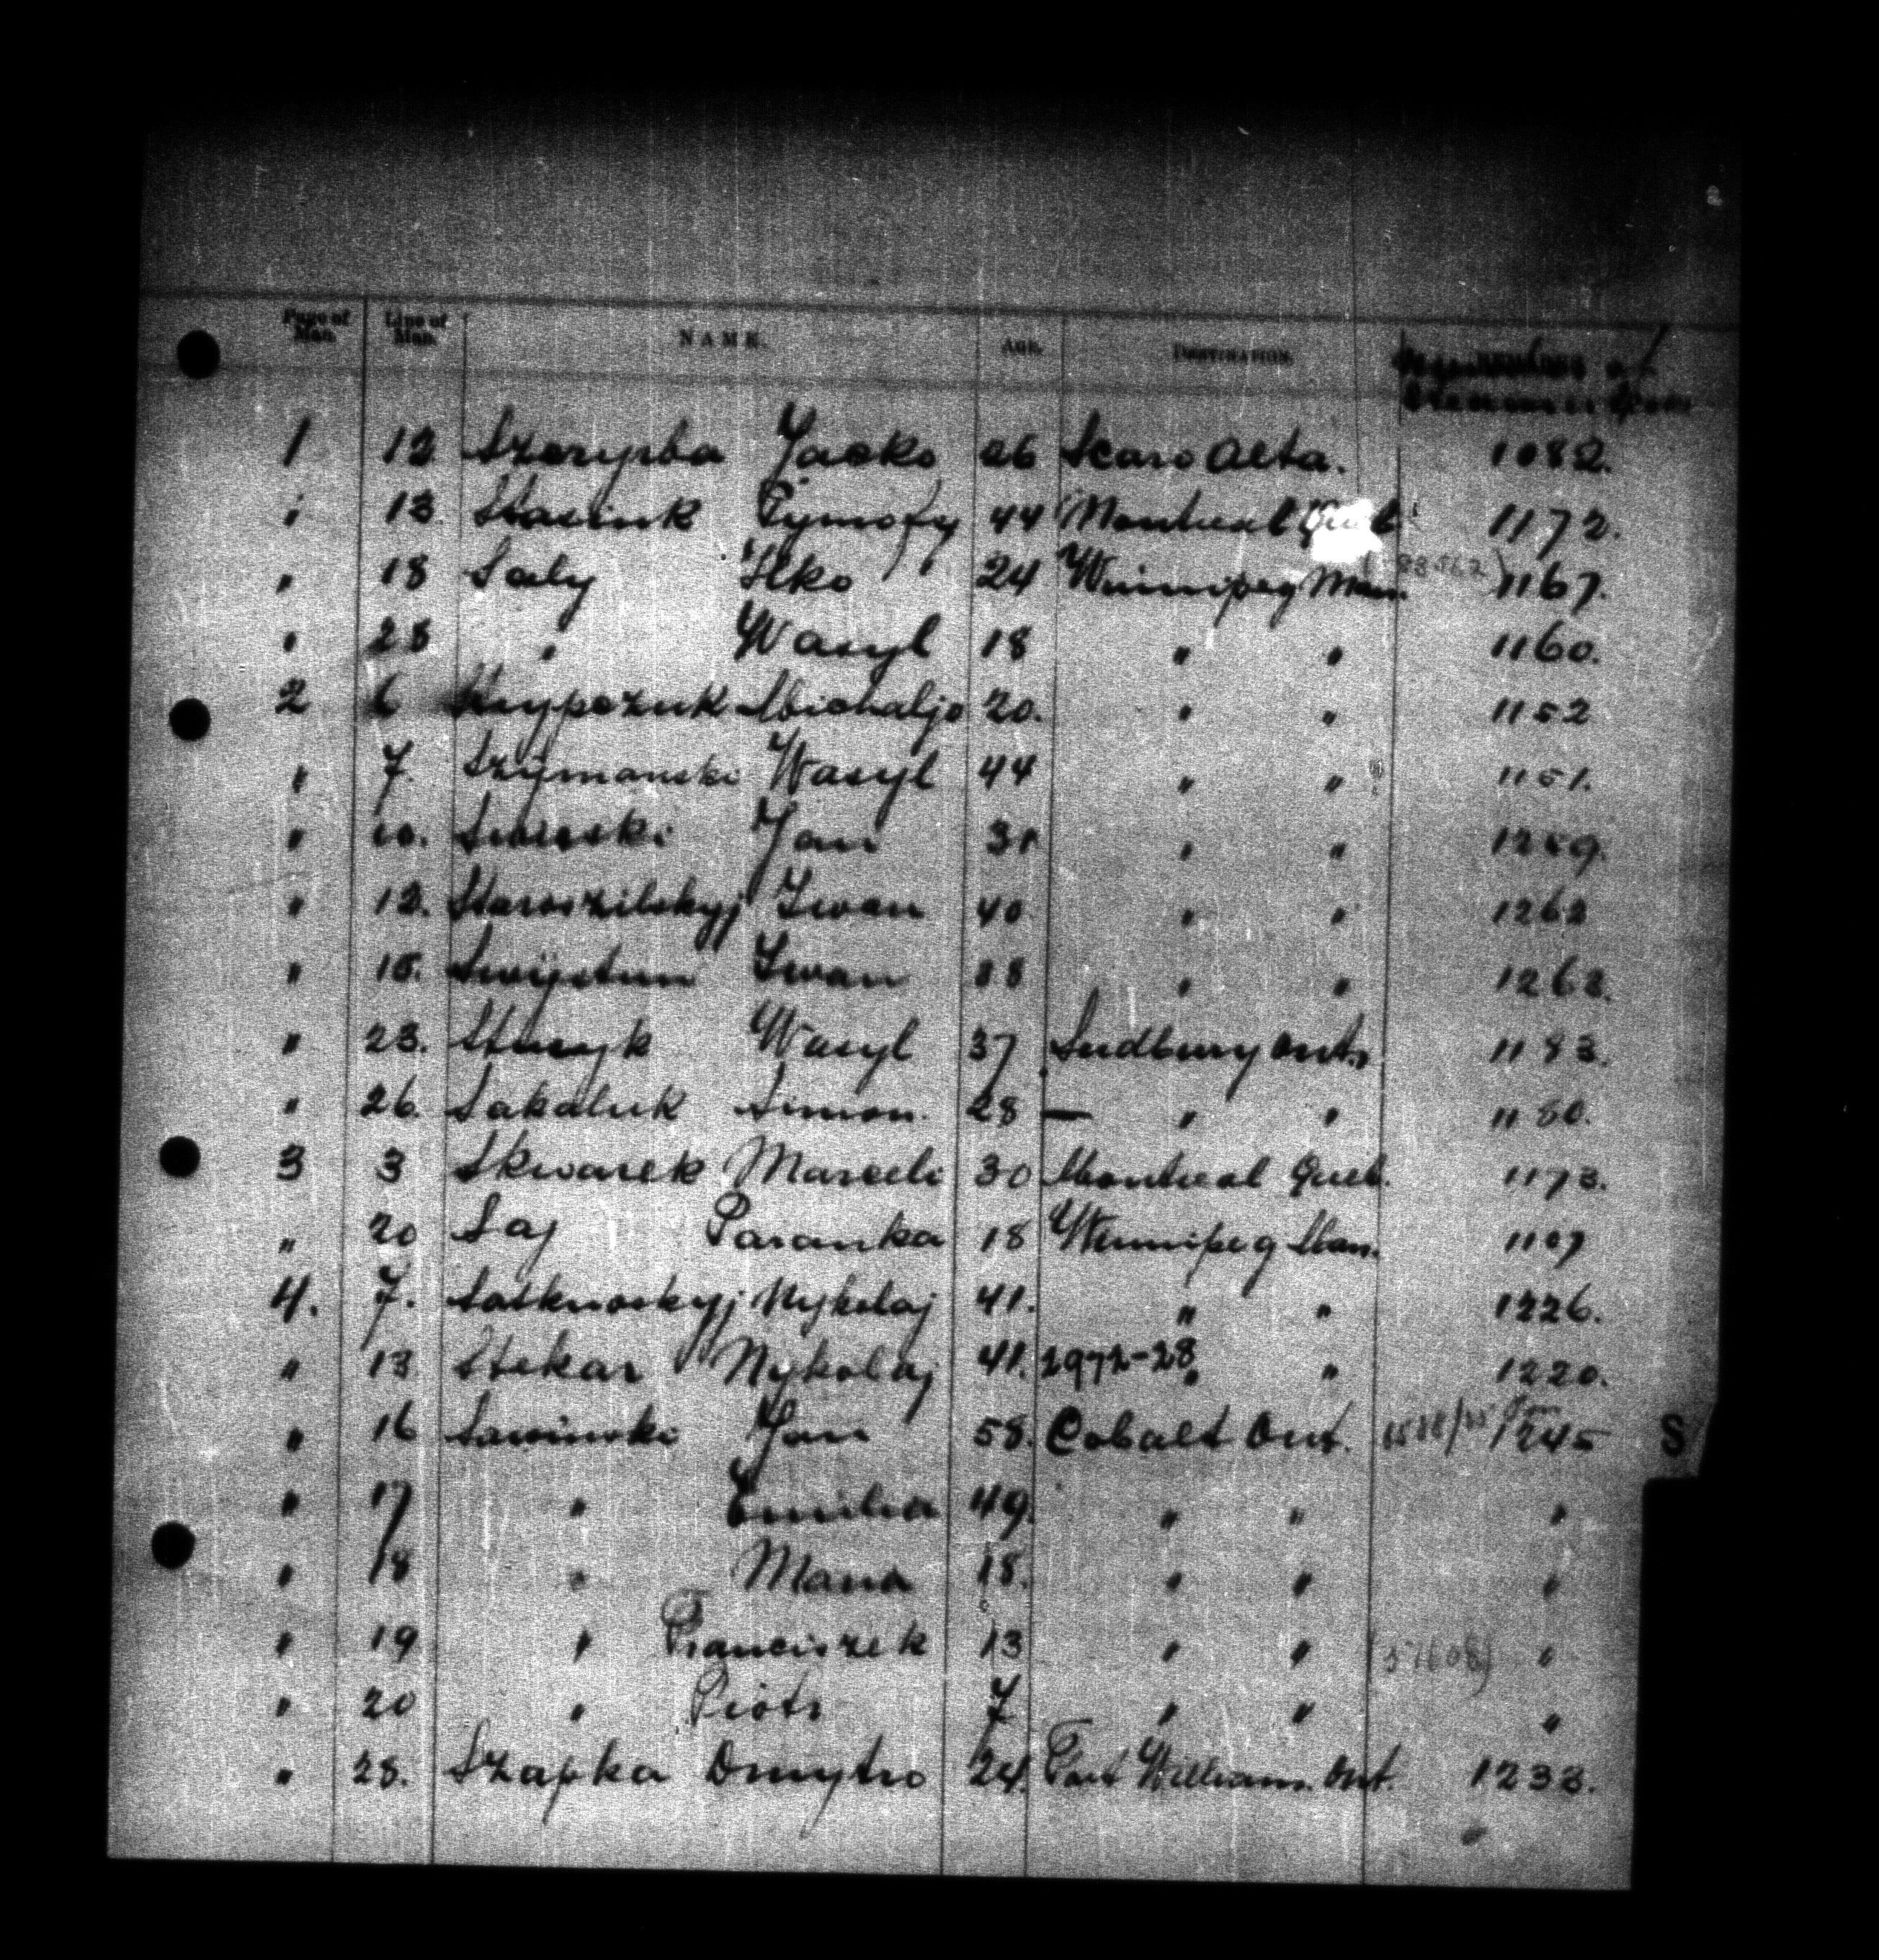 Page of Man. Line of Man. NAME. AGE. DESTINATION.
1 12 Szerypba Jacko 26 Scaro Alta. 1082.
" 13 Stasiuk Tymofy 44 Montreal Queb. 1172.
" 18 Saly Ilko 24 Winnipeg Man. 1167.
" 28 " Wasyl 18 " " 1160.
2 6 Michaljo 20. " " 1152
" 7. Szymanski Wasyl 44 " " 1151.
" 10. Jan 31 " " 1259.
" 12. Staroszilskyj Iwan 40 " " 1262
" 15. Swystun Iwan " " 1262.
" 23. Wasyl 37 Sudbury Ont. 1183.
" 26. Sakaluk Simon. 28 — " " 1180.
3 3 Skwarek Marceli 30 Montreal Queb. 1173.
" 20 Saj Paranka 18 Winnipeg Man. 1107
4. 7. Nykolaj 41. " " 1226.
" 13 Stekar Nykolaj 41. 2972-28 " " 1220.
" 16 Sawinski Jan 58. Cobalt Ont. 1245 S
" 17 " Emilia 49. " " "
" 18 " Maria 18. " " "
" 19 " Franciszek 13 " " "
" 20 " Piotr 7 " " "
" 28. Szapka Dmytro 24. Fort William. Ont. 1233.